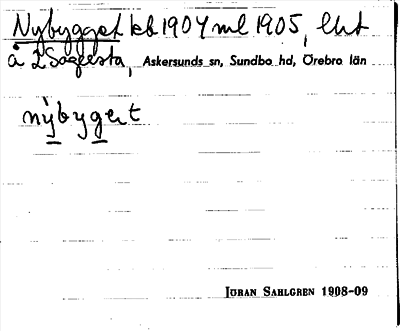 Nybygget kb 1904 ml 1905, lht
å 2 Sågesta, Askersunds sn, Sundbo hd, Örebro län
nỳbyget
JÖRAN SAHLGREN 1908-09